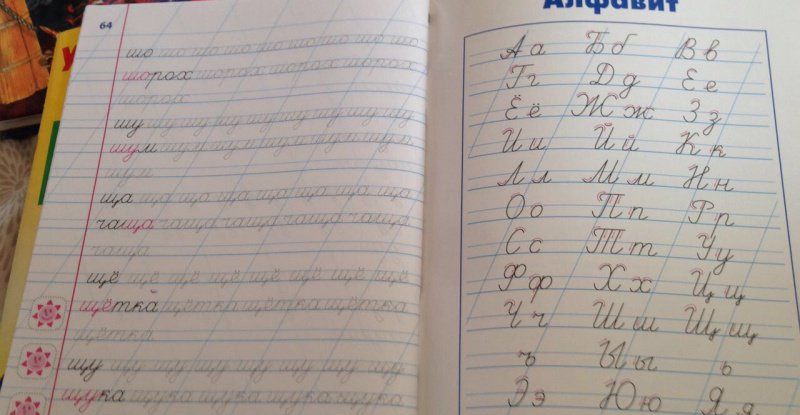 64
шо шо шо шо шо шо шо шо шо
шорох шорох шорох шорох
шорох
шу шу шу шу шу шу шу шу шу
шум шум шум шум шум шум
шум
ща ща ща ща ща ща ща
чаща чаща чаща чаща чаща
чаща
щё щё щё щё щё щё щё
щётка щётка щётка щётка
щётка
щу щу щу щу щу щу щу щу
щука щука щука щука щука
Алфавит
Аа Бб Вв
Гг Дд Ее
Ёё Жж Зз
Ии Йй Кк
Лл Мм Нн
Оо Пп Рр
Сс Тт Уу
Фф Хх Цц
Чч Шш Щщ
ъ Ыы ь
Ээ Юю Яя